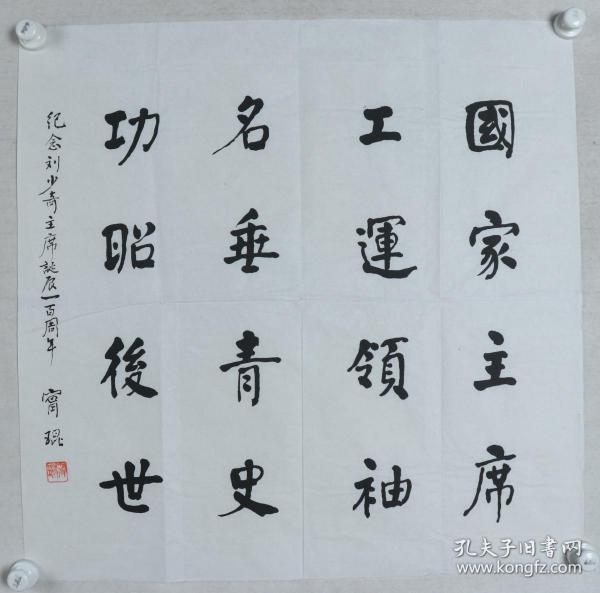 國家主席
工運領袖
名垂青史
功昭後世
纪念刘少奇主席誕辰一百周年
甯琨
孔夫子旧书网
www.kongfz.com